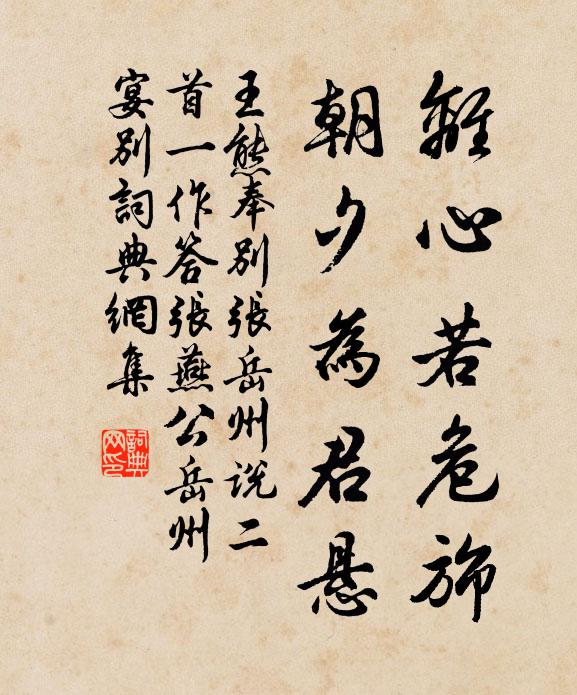 離心若危旆
朝夕為君懸
王熊奉別張岳州說二
首一作答張燕公岳州
宴別詞典網集
詞典
网印